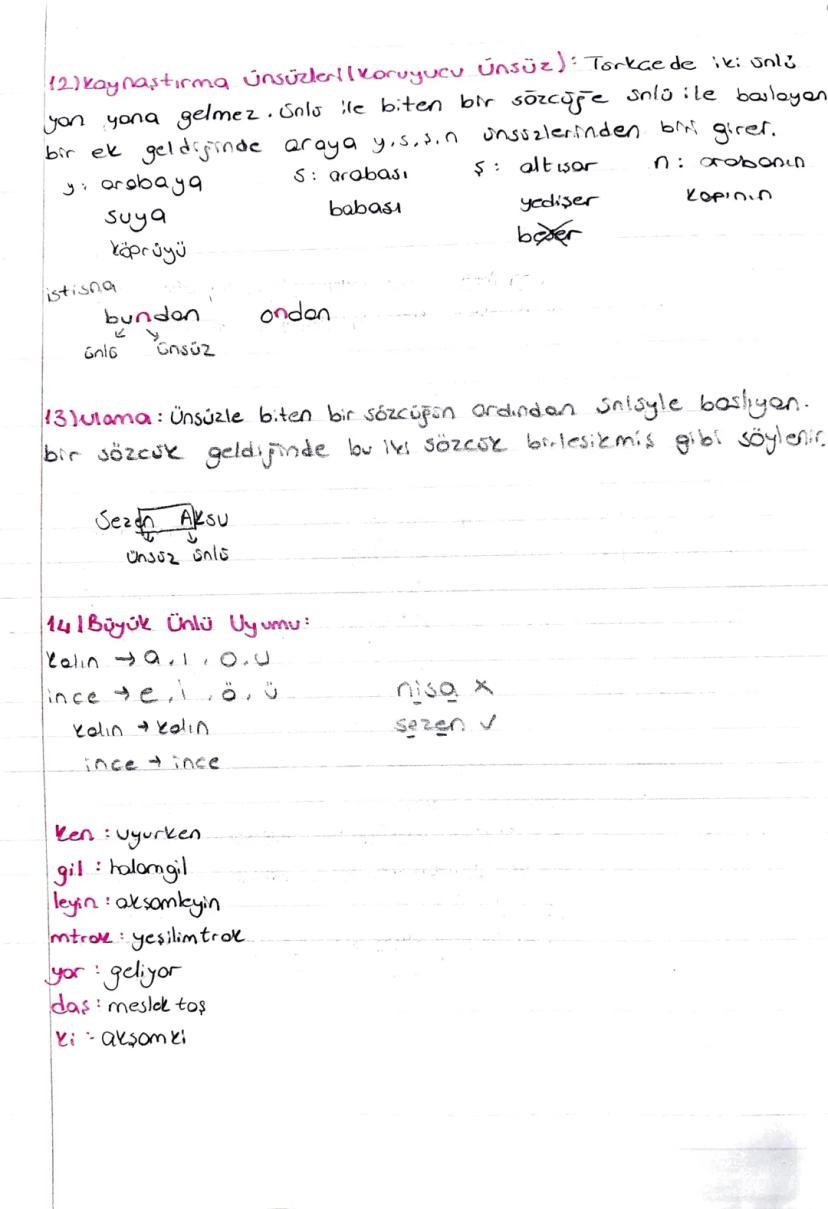 12) Kaynaştırma Ünsüzleri (Koruyucu Ünsüz): Türkçede iki ünlü
yan yana gelmez. Ünlü ile biten bir sözcüğe ünlü ile başlayan
bir ek geldiğinde araya y, s, ş, n ünsüzlerinden biri girer.
y: arabaya s: arabası ş: altışar n: arabanın
suya babası yedişer kapının
köprüyü beşer
istisna
bundan ondan
ünlü ünsüz
13) Ulama: Ünsüzle biten bir sözcüğün ardından ünlüyle başlıyan.
bir sözcük geldiğinde bu iki sözcük birleşikmiş gibi söylenir.
Sezen Aksu
ünsüz ünlü
14) Büyük Ünlü Uyumu:
kalın → a, ı, o, u
ince → e, i, ö, ü nisa x
kalın → kalın sezen ✓
ince → ince
ken: uyurken
gil: halamgil
leyin: akşamleyin
mtrak: yeşilimtrak
yor: geliyor
daş: meslektaş
ki: akşamki